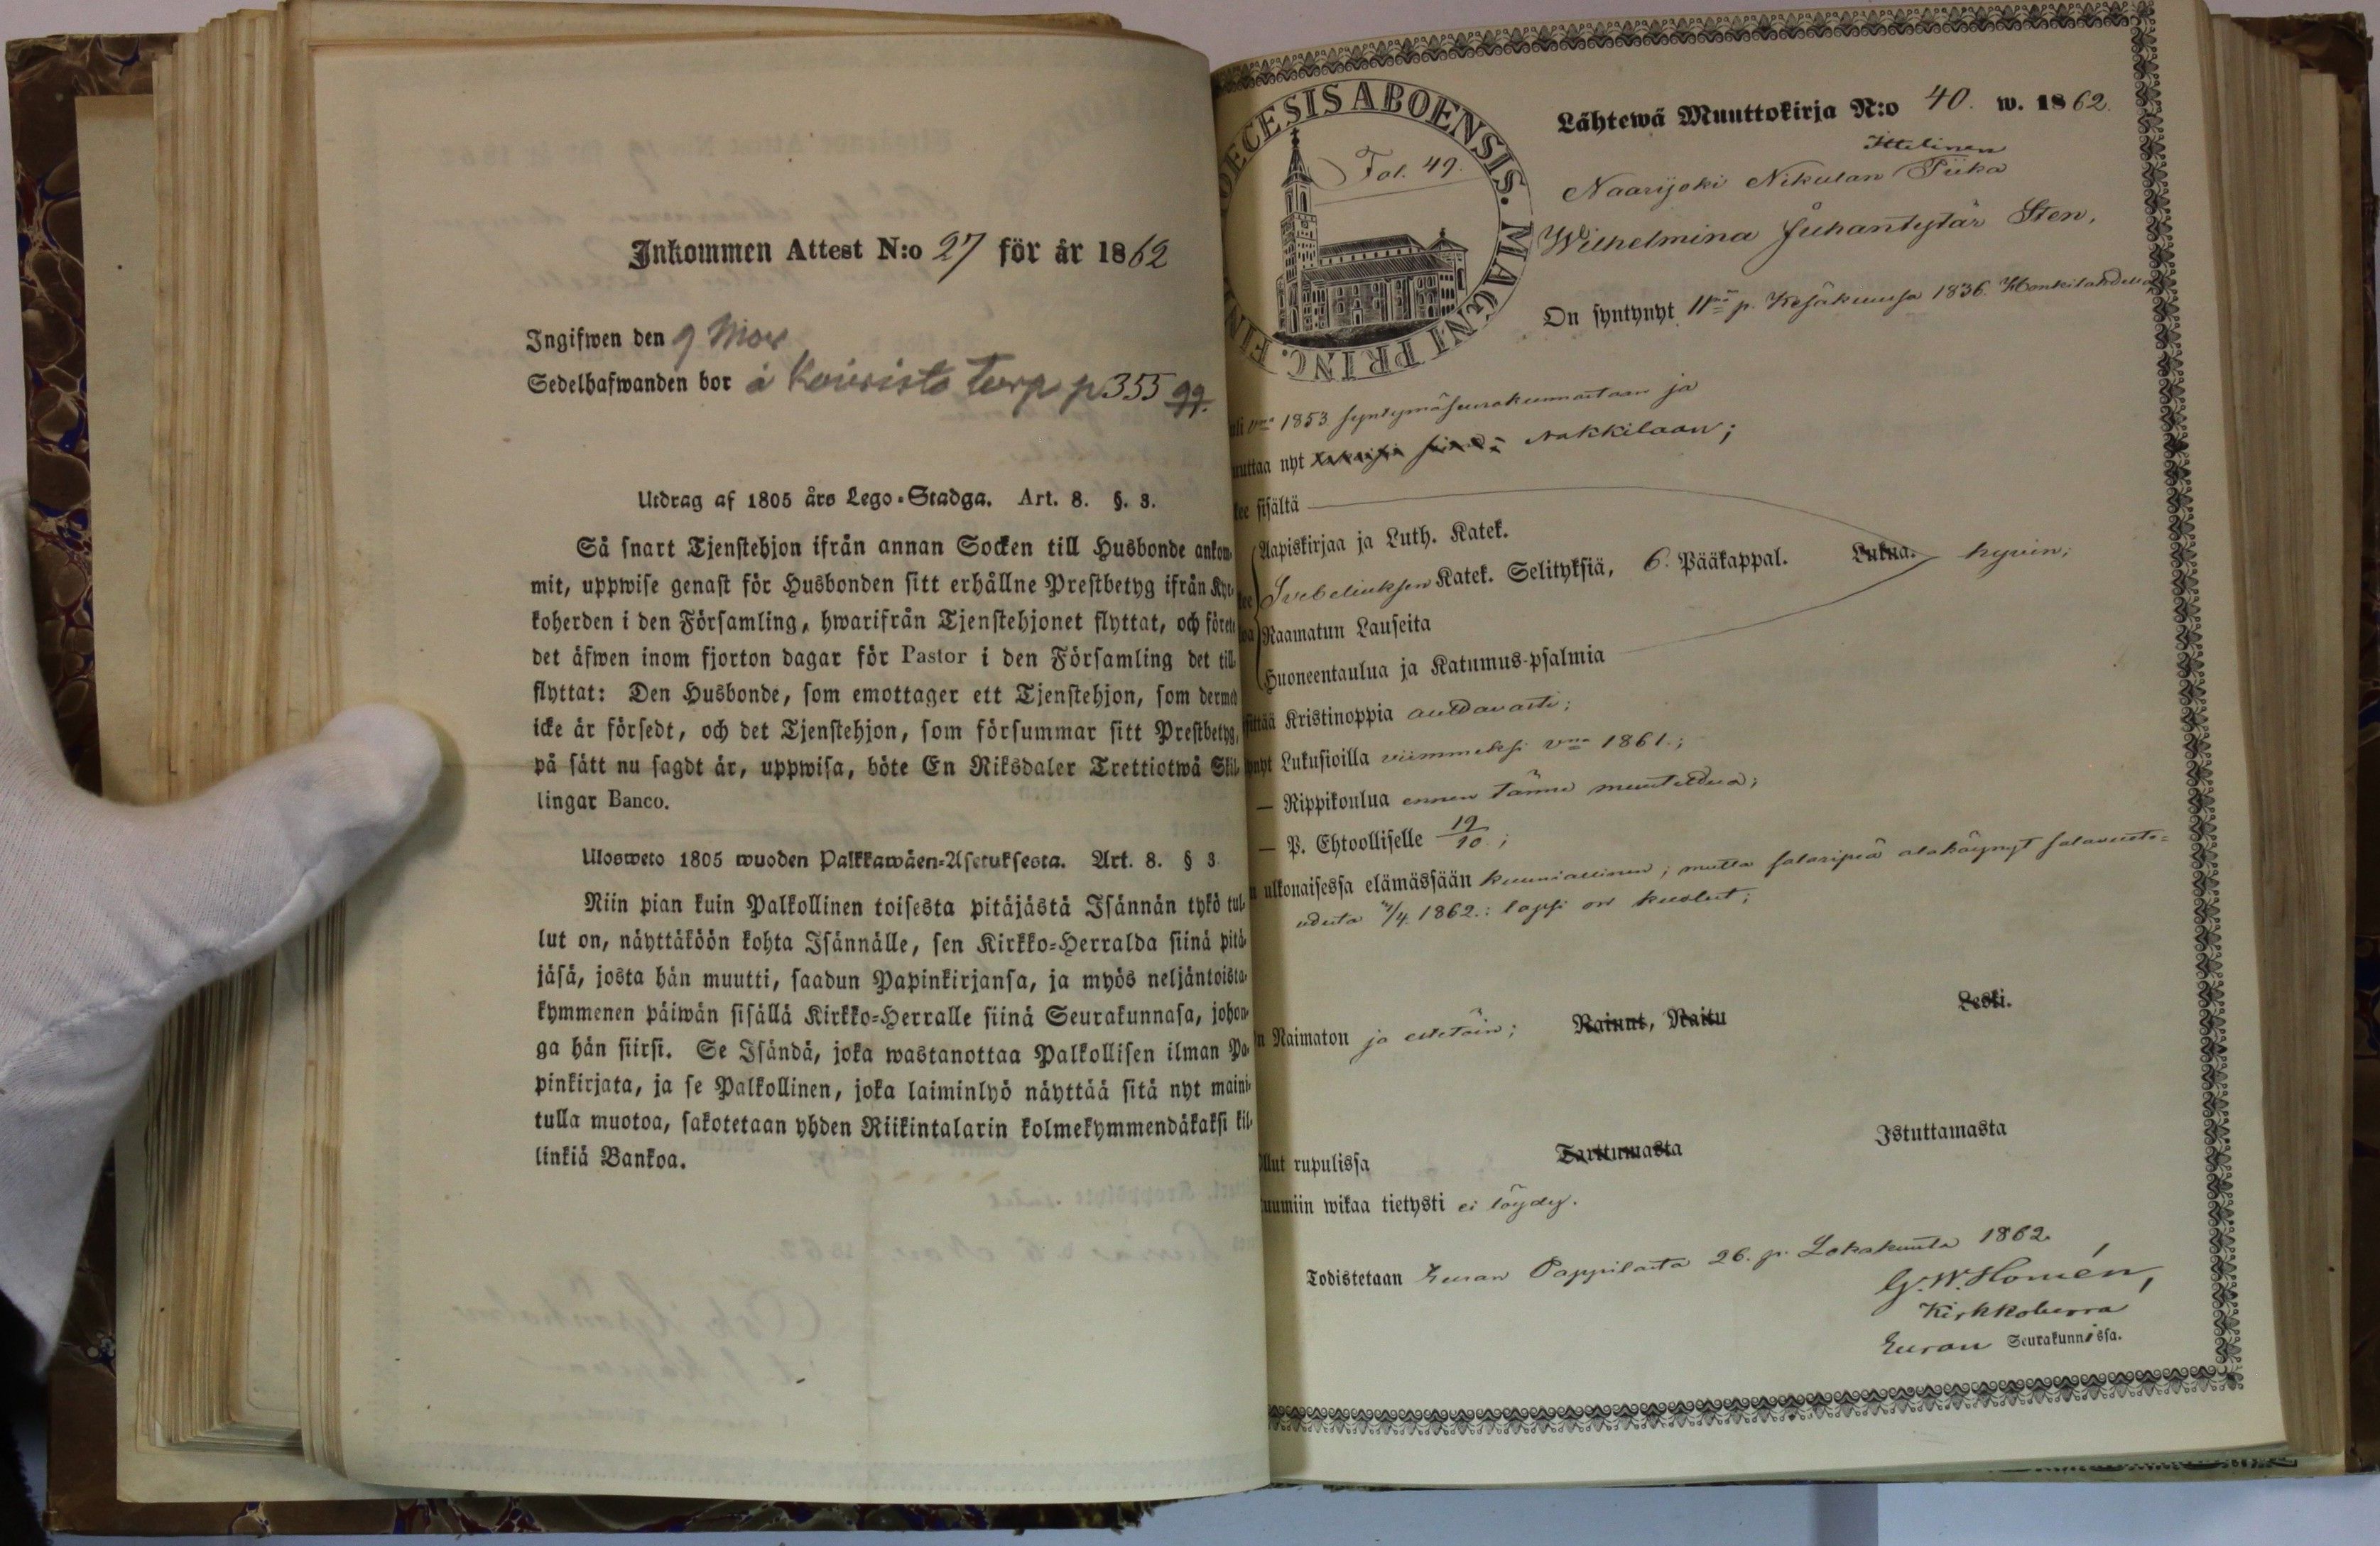 Inkommen Attest N:o 27 för år 1862
Ingifwen den 9 Nov
Sedelhafwanden bor å Koivisto torp p 355
Utdrag af 1805 års Lego-Stadga. Art. 8. §. 3.
Så snart Tjenstehjon ifrån annan Socken till Husbonde ankom-
mit, uppwise genast för Husbonden sitt erhållne Prestbetyg ifrån Kyr-
koherden i den Församling, hwarifrån Tjenstehjonet flyttat, och förete
det äfwen inom fjorton dagar för Pastor i den Församling det till-
flyttat: Den Husbonde, som emottager ett Tjenstehjon, som dermed
icke är försedt, och det Tjenstehjon, som försummar sitt Prestbetyg,
på sätt nu sagdt är, uppwisa, böte En Riksdaler Trettiotwå Skil-
lingar Banco.
Ulosweto 1805 wuoden Palkkawäen-Asetuksesta. Art. 8. § 3
Niin pian kuin Palkollinen toisesta pitäjästä Isännän tykö tul-
lut on, näyttäköön kohta Isännälle, sen Kirkko-Herralda siinä pitä-
jäsä, josta hän muutti, saadun Papinkirjansa, ja myös neljäntoista-
kymmenen päiwän sisällä Kirkko-Herralle siinä Seurakunnasa, johon-
ga hän siirsi. Se Isändä, joka wastanottaa Palkollisen ilman Pa-
pinkirjata, ja se Palkollinen, joka laiminlyö näyttää sitä nyt maini-
tulla muotoa, sakotetaan yhden Riikintalarin kolmekymmendäkaksi kil-
linkiä Bankoa.
DECESIS ABOENSIS. MAGNI PRINC. FIN
Fol. 49.
Lähtewä Muuttokirja N:o 40. w. 1862.
Ittelinen
Naarijoki Nikulan Piika
Wilhelmina Juhantytär Sten,
On syntynyt 11nä p. Kesäkuussa 1836. Honkilahdella
uli vna 1853 syntymäseurakunnastaan ja
uuttaa nyt Nakkilaan;
kee sisältä
Aapiskirjaa ja Luth. Katek.
Svebeliuksen Katek. Selityksiä, 6. Pääkappal. Lukua. hyvin;
Raamatun Lauseita
Huoneentaulua ja Katumus-psalmia
sittää Kristinoppia auttavasti;
ynyt Lukusioilla viimmeksi vna 1861.;
— Rippikoulua ennen tänne muuttoa;
— P. Ehtoolliselle 19/10;
n ulkonaisessa elämässään kunniallinen; mutta salaripiä alakäynyt salavuote-
udesta /4 1862.: lapsi on kuollut;
n Naimaton ja esteetöin; Nainut, Naitu Leski.
llut rupulissa Tarttumasta Istuttamasta
uumiin wikaa tietysti ei löydy.
Todistetaan Euran Pappilasta 26. p. Lokakuuta 1862.
G. W. Homén,
Kirkkoherra
Euran Seurakunnissa.